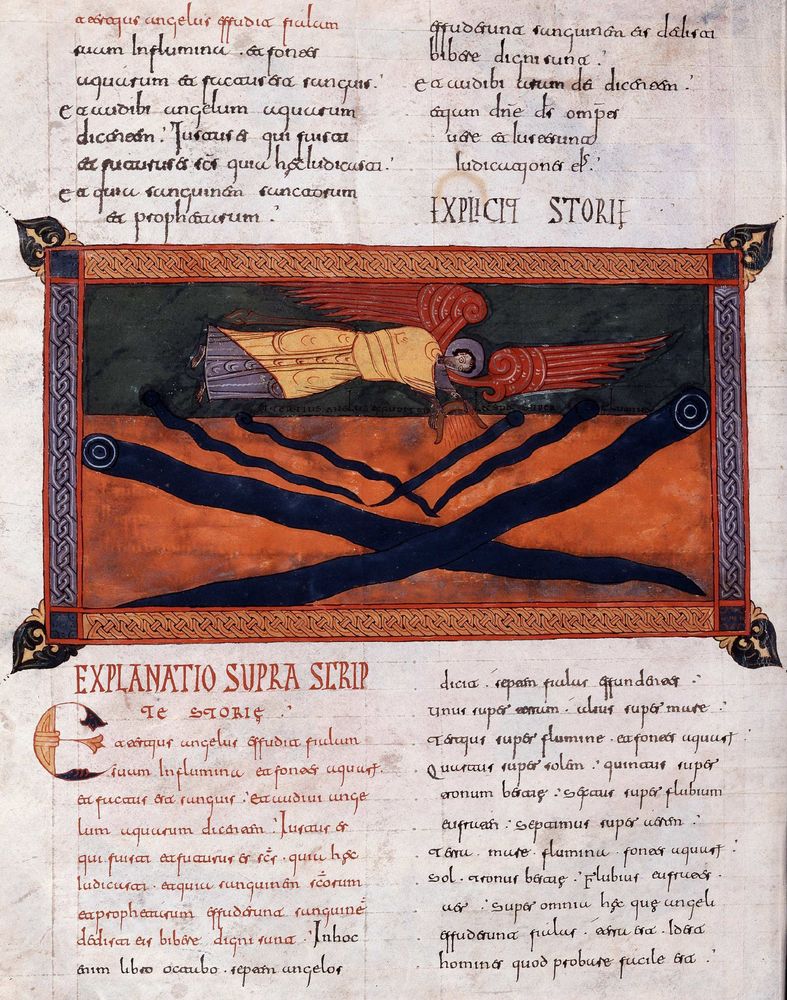 tertius angelus effudit fialam
suam Influmina. et fontes
aquarum et factus est sanguis.
Et audibi angelum aquarum
dicentem. Iustus es qui fuisti
et futurus es scs quia hęc Iudicasti.
Et quia sanguinem sanctorum
et prophetarum.
effuderunt sanguinem eis dedisti
bibere digni sunt.
Et audibi aram dicentem.
dne ds omps
vere et Iuste sunt
Iudicationes
EXPLICIT STORIĘ
tertius angelus super
EXPLANATIO SUPRA SCRIP
TE STORIĘ.
Tertius angelus effudit fialam
suam Influmina et fontes aquarum
et factus est sanguis. Et audivi ange
lum aquarum dicentem. Iustus es
qui fuisti et futurus es scs. quia hęc
Iudicasti. et quia sanguinem scorum
et prophetarum effuderunt sanguinē
dedisti eis bibere digni sunt. In hoc
enim libro octabo. septem angelos
dicit. septem fialas effunderes
Unus super terram. alius super mare.
Tertius super flumine. et fontes aquarum
Quartus super solem. quintus super
tronum bestię. Septus super flubium
eufraten. Septimus super aerem.
Terra. mare. flumina. fontes aquarum
Sol. tronus bestię. Flubius eufrates.
aer. Super omnia hęc quę angeli
effuderunt fialas. terra est. Id est
homines quod probare facile est.